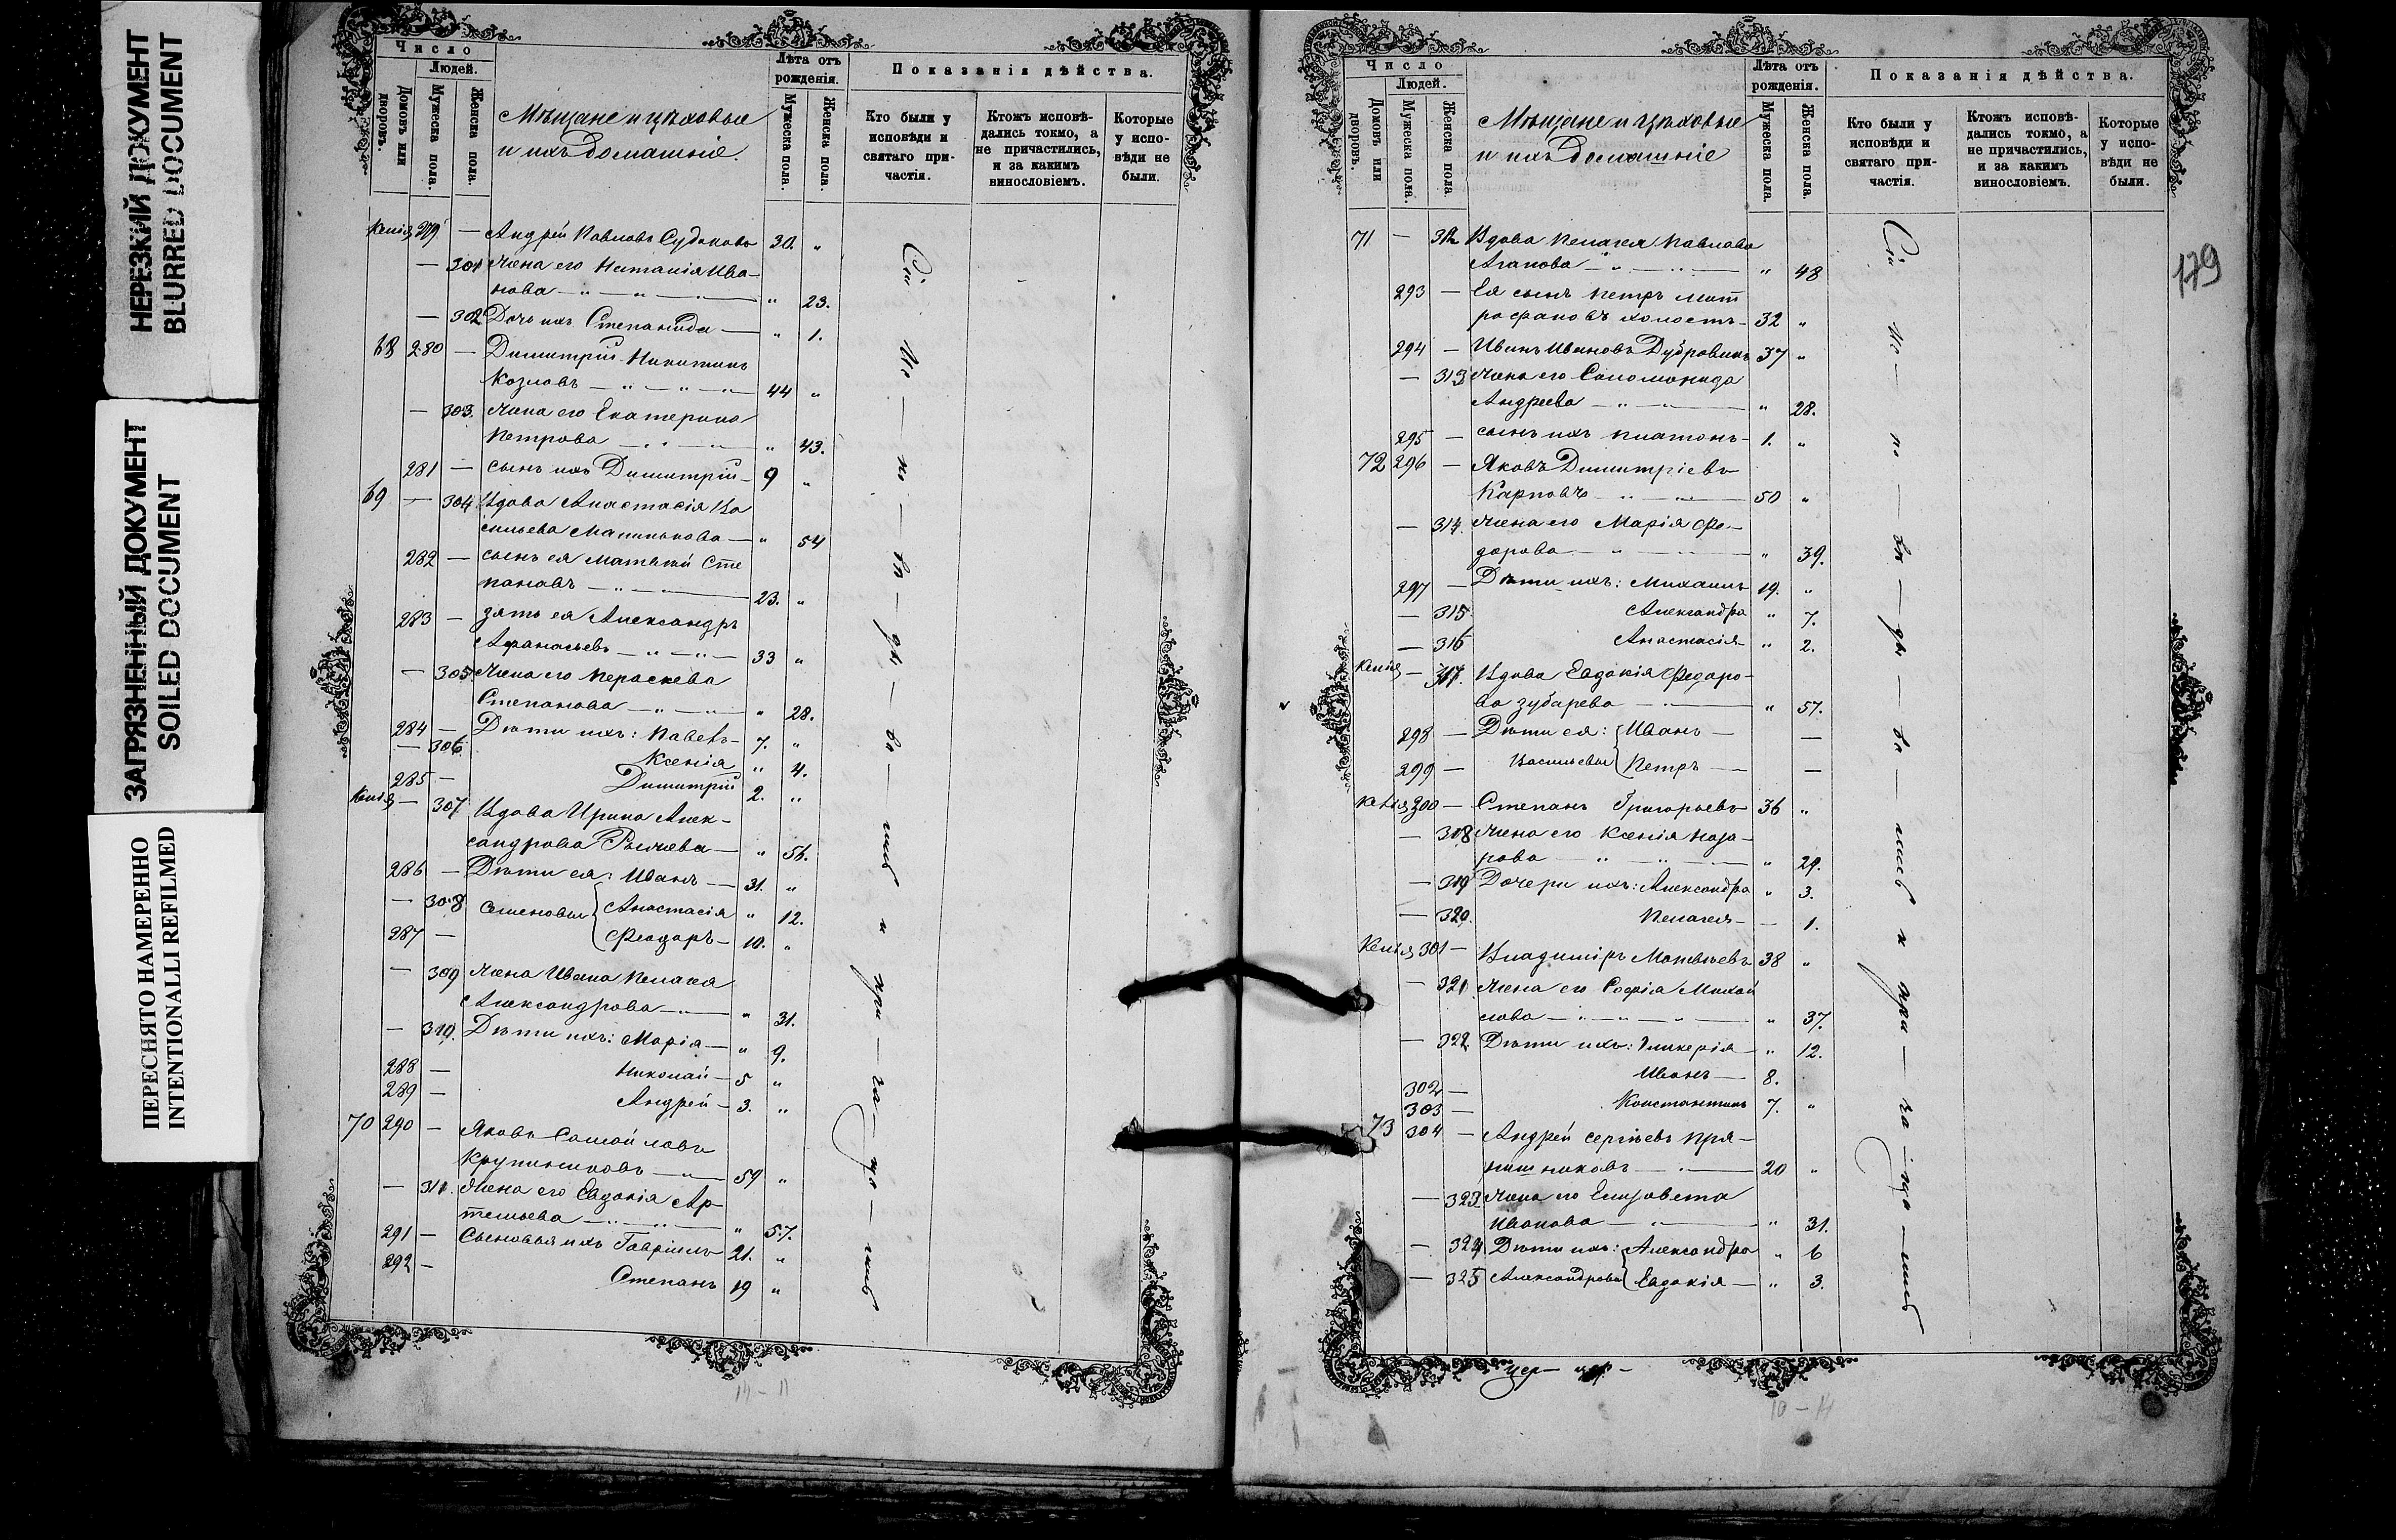 НЕРЕЗКИЙ ДОКУМЕНТ
BLURRED DOCUMENT
ЗАГРЯЗНЕННЫЙ ДОКУМЕНТ
SOILED DOCUMENT
ПЕРЕСНЯТО НАМЕРЕННО
INTENTIONALLI REFILMED
Число
Людей.
Домовъ или дворовъ.
Мужеска пола.
Женска пола.
Мѣщане и цѣховые
и ихъ домашніе.
Лѣта отъ рожденія.
Мужеска пола.
Женска пола.
Показанія дѣйства.
Кто были у исповѣди и святаго причастія.
Ктожъ исповѣдались токмо, а не причастились, и за какимъ винословіемъ.
Которые у исповѣди не были.
279 — Андрей Павловъ Судаковъ 30. „
— 301 Жена его Наталія Ива-
нова — „ — „ — „ — „ 23.
— 302 Дочь ихъ Степанида — „ 1.
68 280 — Димитрій Никитинъ
Козловъ — „ — „ — „ 44 „
— 303. Жена его Екатерина
Петрова — „ — „ „ 43.
281 — сынъ ихъ Димитрій — 9 „
69 — 304 Вдова Анастасія Ва
сильева Малинкова — „ 54
282 — сынъ ея Матѳей Сте
пановъ — „ — 23. „
283 — зять ея Александръ
Афанасьевъ — „ — „ — 33 „
— 305 Жена его Пераскева
Степанова — „ — „ — „ 28.
284 — Дѣти ихъ: Павелъ — 7. „
— 306 Ксенія „ 4.
285 — Димитрій 2. „
— 307 Вдова Ирина Алек-
сандрова — „ 56.
286 — Дѣти ея: Иванъ — 31. „
— 308 Семеновы Анастасія „ 12.
287 — Феодоръ — 10. „
— 309 Жена Ивана Пелагея
Александрова — „ — „ 31.
— 310. Дѣти ихъ: Марія — „ 9.
288 — Николай — 5 „
289 — Андрей — 3. „
70 290 — Яковъ Самойловъ
Крупенниковъ — „ 59 „
— 311. Жена его Евдокія Ар-
темьева — „ — „ — „ 57.
291 — Сыновья ихъ Гавріилъ 21. „
292 — Степанъ 19 „
Сіи
Ис — по — вѣ — да — ва — лись и при — ча — ща — лись
Число
Людей.
Домовъ или дворовъ.
Мужеска пола.
Женска пола
Мѣщане и цѣховые
и ихъ домашніе
Лѣта отъ рожденія.
Мужеска пола.
Женска пола.
Показанія дѣйства.
Кто были у исповѣди и святаго причастія.
Ктожъ исповѣдались токмо, а не причастились, и за какимъ винословіемъ.
Которые у исповѣди не были.
179
71 — 312 Вдова Пелагея Павлова
Агапова — „ — „ — „ 48
293 — Ея сынъ Петръ Мит
рофановъ холостъ — 32 „
294 — Иванъ Ивановъ Дубровинъ 37 „
— 313 Жена его Соломонида
Андреева — „ — „ — „ 28.
295 — сынъ ихъ Платонъ — 1. „
72 296 — Яковъ Димитріевъ
Карповъ — „ — „ — 50 „
— 314. Жена его Марія Фе-
дорова — „ — „ 39.
297 — Дѣти ихъ: Михаилъ 19. „
— 315 Александра „ 7.
— 316 Анастасія — „ 2.
— 317. Вдова Евдокія Федоро-
ва Зубарева — „ — „ 57.
298 — Дѣти ея: Иванъ — —
299 — Васильевы Петръ — —
300 — Степанъ Григорьевъ 36 „
— 318 Жена его Ксенія Наза-
рова — „ — „ — „ 29.
— 319 Дочери ихъ: Александра „ 3.
— 320. Пелагея — — 1.
301 — Владиміръ Матвѣевъ 38 „
— 321 Жена его Софія Михай
лова — „ — „ — „ — „ 37.
— 322 Дѣти ихъ: Гликерія — „ 12.
302 — Иванъ — 8.
303 — Константинъ 7. „
73 304 — Андрей Сергѣевъ Пря-
нишниковъ — „ — 20 „
— 323 Жена его Елизавета
Иванова — „ — „ 31.
— 324 Дѣти ихъ: Александра „ 6
— 325 Александровы Евдокія — „ 3.
Сіи
Ис — по — вѣ — да — ва — лись и при — ча — ща — лись